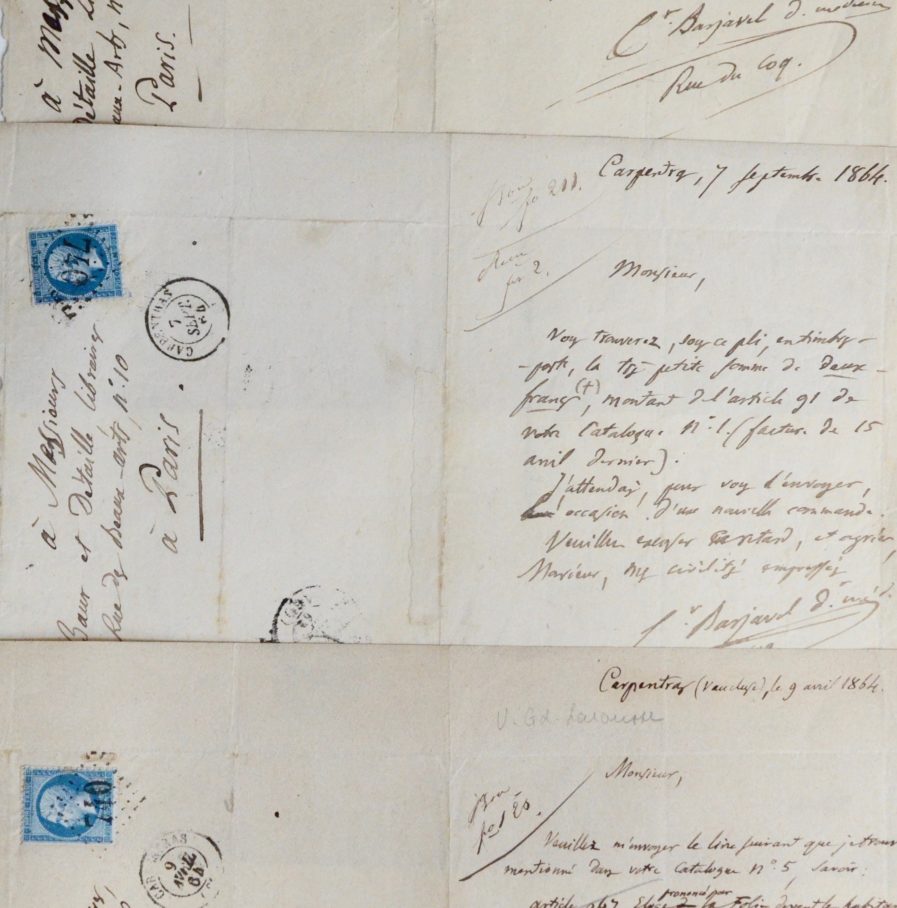 à Mes
Détaille Li
aux-Arts, n
Paris.
Cr. Barjavel d. médecin
Rue du Coq.
740
CARPENTRAS
7
SEPT.
64
à Messieurs
Baur et Détaille libraires
Rue des beaux-arts, n.º 10
à Paris
Carpentras, 7 septembre 1864.
fo 211.
fo 2.
Monsieur,
Vous trouverez, sous ce pli, en timbres-
-poste, la très petite somme de deux-
francs (+), montant de l'article 91 de
votre Catalogue N.º 1. (facture de 15
avril dernier).
J'attendais, pour vous l'envoyer,
l'occasion d'une nouvelle commande.
Veuillez excuser ce retard, et agréer,
Monsieur, mes civilités empressées
Cr. Barjavel d.r méd.
740
CARPENTRAS
9
AVRIL
64
Carpentras (Vaucluse), le 9 avril 1864.
V. Gd. Larousse
Monsieur,
Veuillez m'envoyer le livre suivant que je trouve
mentionné dans votre Catalogue N.º 5, Savoir:
prononcé par
article 967 Eloge de la Folie devant les habitan